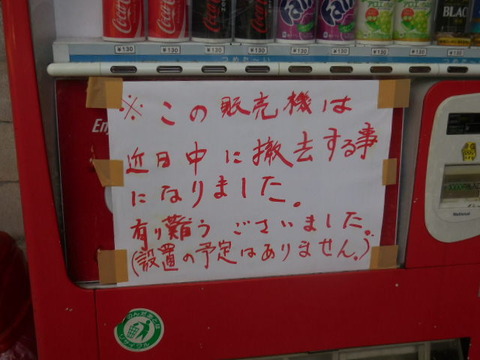 ¥130 ¥130 ¥130 ¥130 ¥130 ¥130
つめた〜い
※この販売機は
近日中に撤去する事
になりました。
有り難うございました。
(設置の予定はありません。)